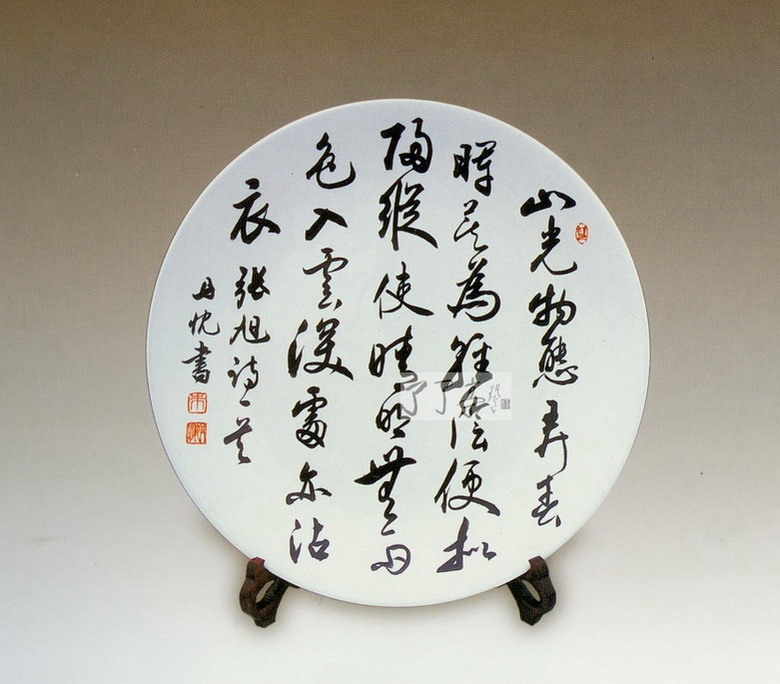 山光物態弄春
暉莫為輕陰便拟
歸縱使晴明無雨
色入雲深處亦沾
衣 張旭詩一首
丹忱書